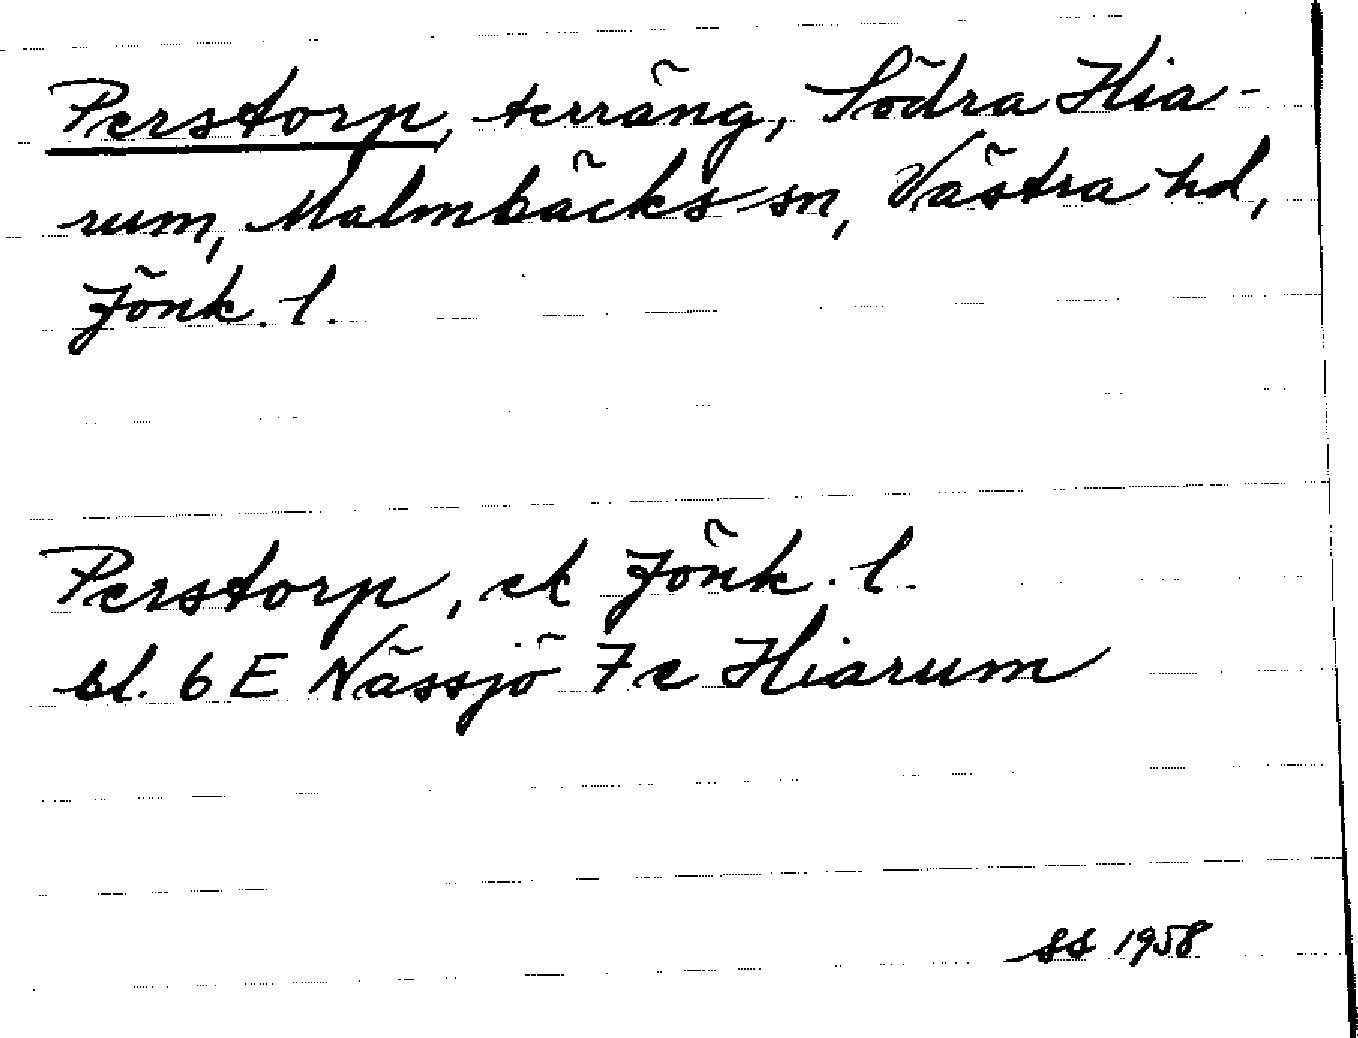 Perstorp, terräng, Södra Hia-
rum, Malmbäcks sn, Västra hd,
Jönk. l.
Perstorp, ek Jönk. l.
bl. 6 E Nässjö 7 c Hiarum
SS 1958